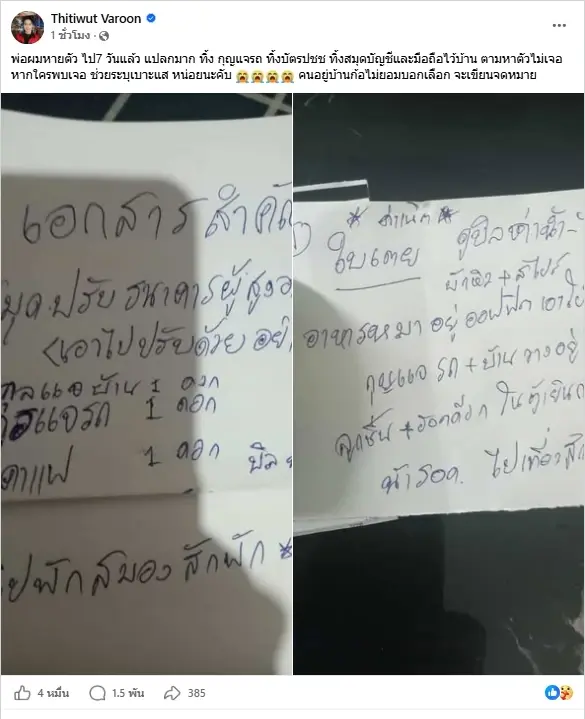 Thitiwut Varoon
1 ชั่วโมง ·
พ่อผมหายตัว ไป7 วันแล้ว แปลกมาก ทิ้ง กุญแจรถ ทิ้งบัตรปชช ทิ้งสมุดบัญชีและมือถือไว้บ้าน ตามหาตัวไม่เจอ
หากใครพบเจอ ช่วยระบุเบาะแส หน่อยนะคับ 😭😭😭😭 คนอยู่บ้านก้อไม่ยอมบอกเลือก จะเขียนจดหมาย
เอกสาร สำคั
มุด ปรับ ธนาคาร ผู้สูงอ
(เอาไปปรับด้วย อยู่
กุลแจ บ้าน 1 ดอก
กุรแจรถ 1 ดอก
คาแฟ 1 ดอก
ไปพักสมอง สักพัก *
* *
ใบเตย
ผักหิว + สไปร์
อาหารหมา อยู่ ออฟฟิต เอาไป
กุญแจ รถ + บ้าน วางอยู่
ลูกชิ้น + ฮอตด๊อก ในตู้เย็น
น้ารอด. ไปเที่ยว
4 หมื่น
1.5 พัน
385